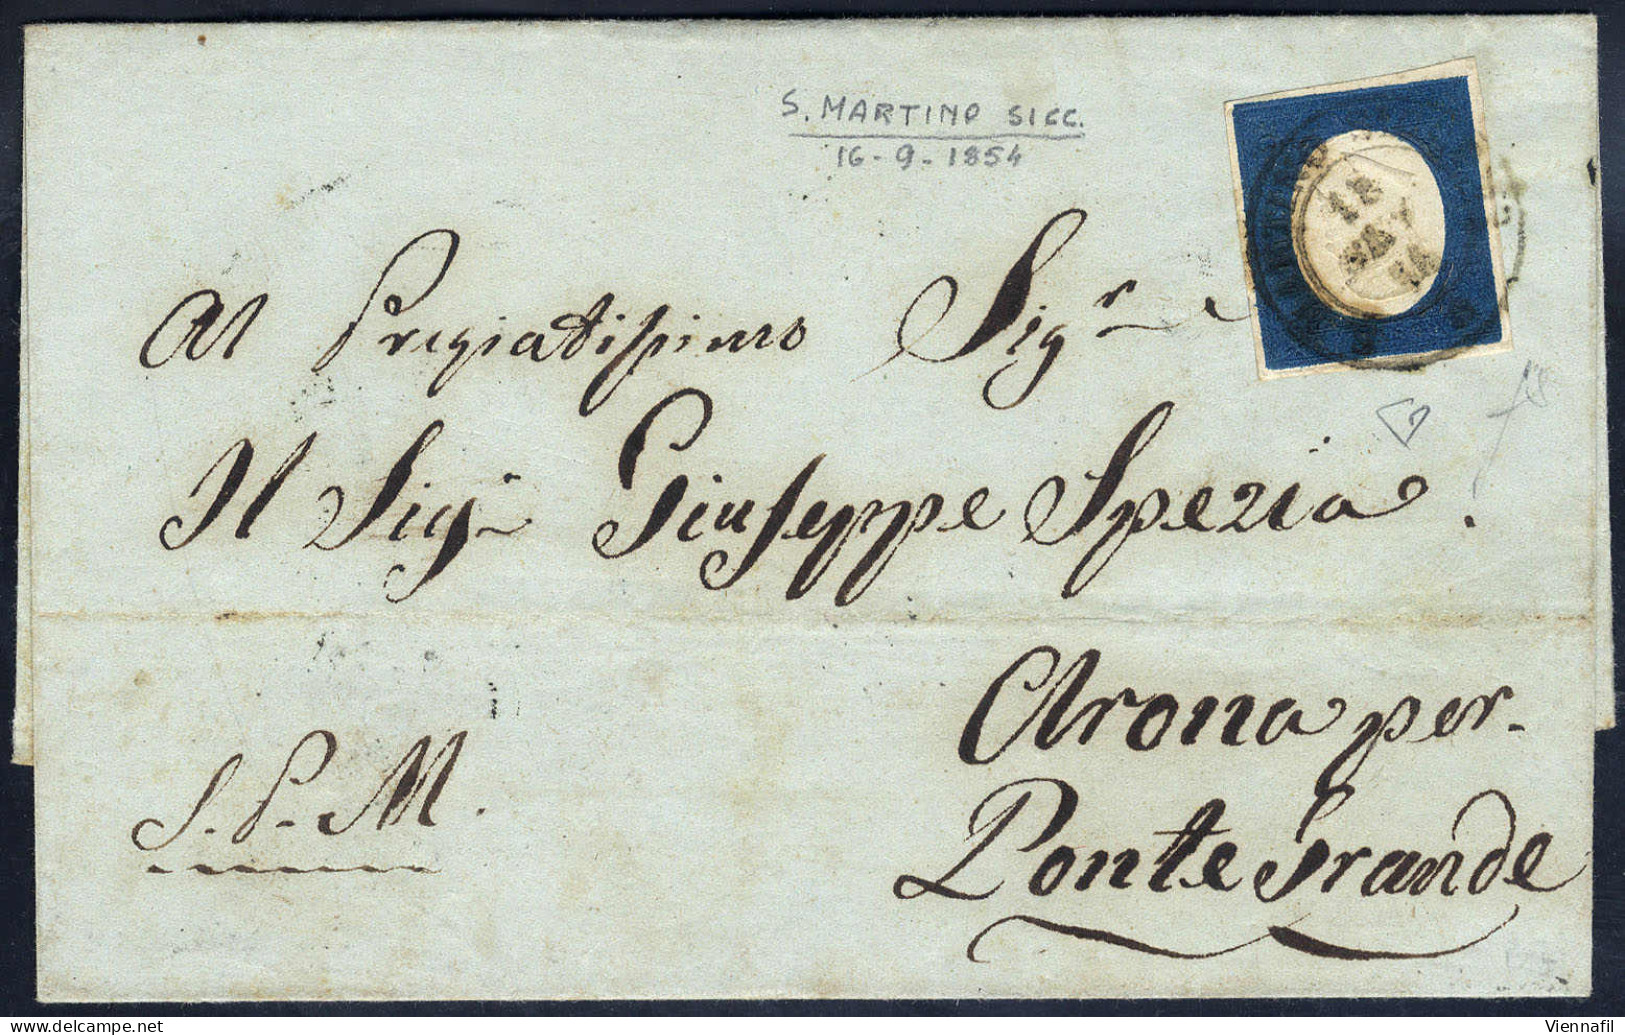 S. MARTINO SICC.
16-9-1854
Al Pregiatissimo Sigr
Il Sigr Giuseppe Spezia
Arona per
Ponte Grande
S. P. M.
Viennafil